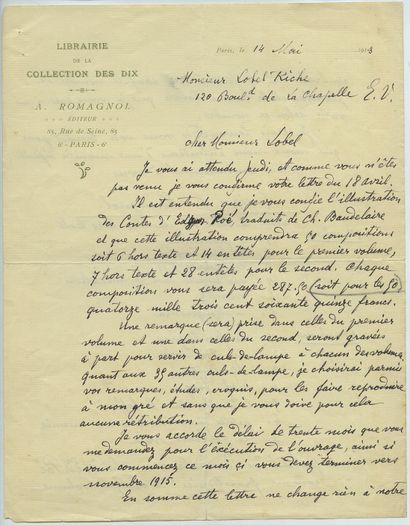 LIBRAIRIE
DE LA
COLLECTION DES DIX
A. ROMAGNOL
ÉDITEUR
85, Rue de Seine, 85
6e - PARIS - 6e
Paris, le 14 Mai 1913
Monsieur Lobel Riche
120 Bould de La Chapelle E.V.
Cher Monsieur Lobel
Je vous ai attendu Jeudi, et comme vous n'êtes
pas venu je vous confirme votre lettre du 18 avril.
Il est entendu que je vous confie l'illustration
des Contes d'Edgar Poë, traduits de Ch. Baudelaire
et que cette illustration comprendra 50 compositions
soit 6 hors texte et 14 entêtes pour le premier volume,
7 hors texte et 28 entêtes pour le second. Chaque
composition vous sera payée 287.50 (soit pour les 50)
quatorze mille trois cent soixante quinze francs.
Une remarque (sera) prise dans celles du premier
volume et une dans celles du second, seront gravées
à part pour servir de culs-de-lampe à chacun des volumes,
quant aux 39 autres culs-de-lampe, je choisirai parmi
vos remarques, études, croquis, pour les faire reproduire
à mon gré et sans que je vous doive pour cela
aucune rétribution.
Je vous accorde le délai de trente mois que vous
me demandez pour l'exécution de l'ouvrage, ainsi si
vous commencez ce mois ci vous devez terminer vers
novembre 1915.
En somme cette lettre ne change rien à notre